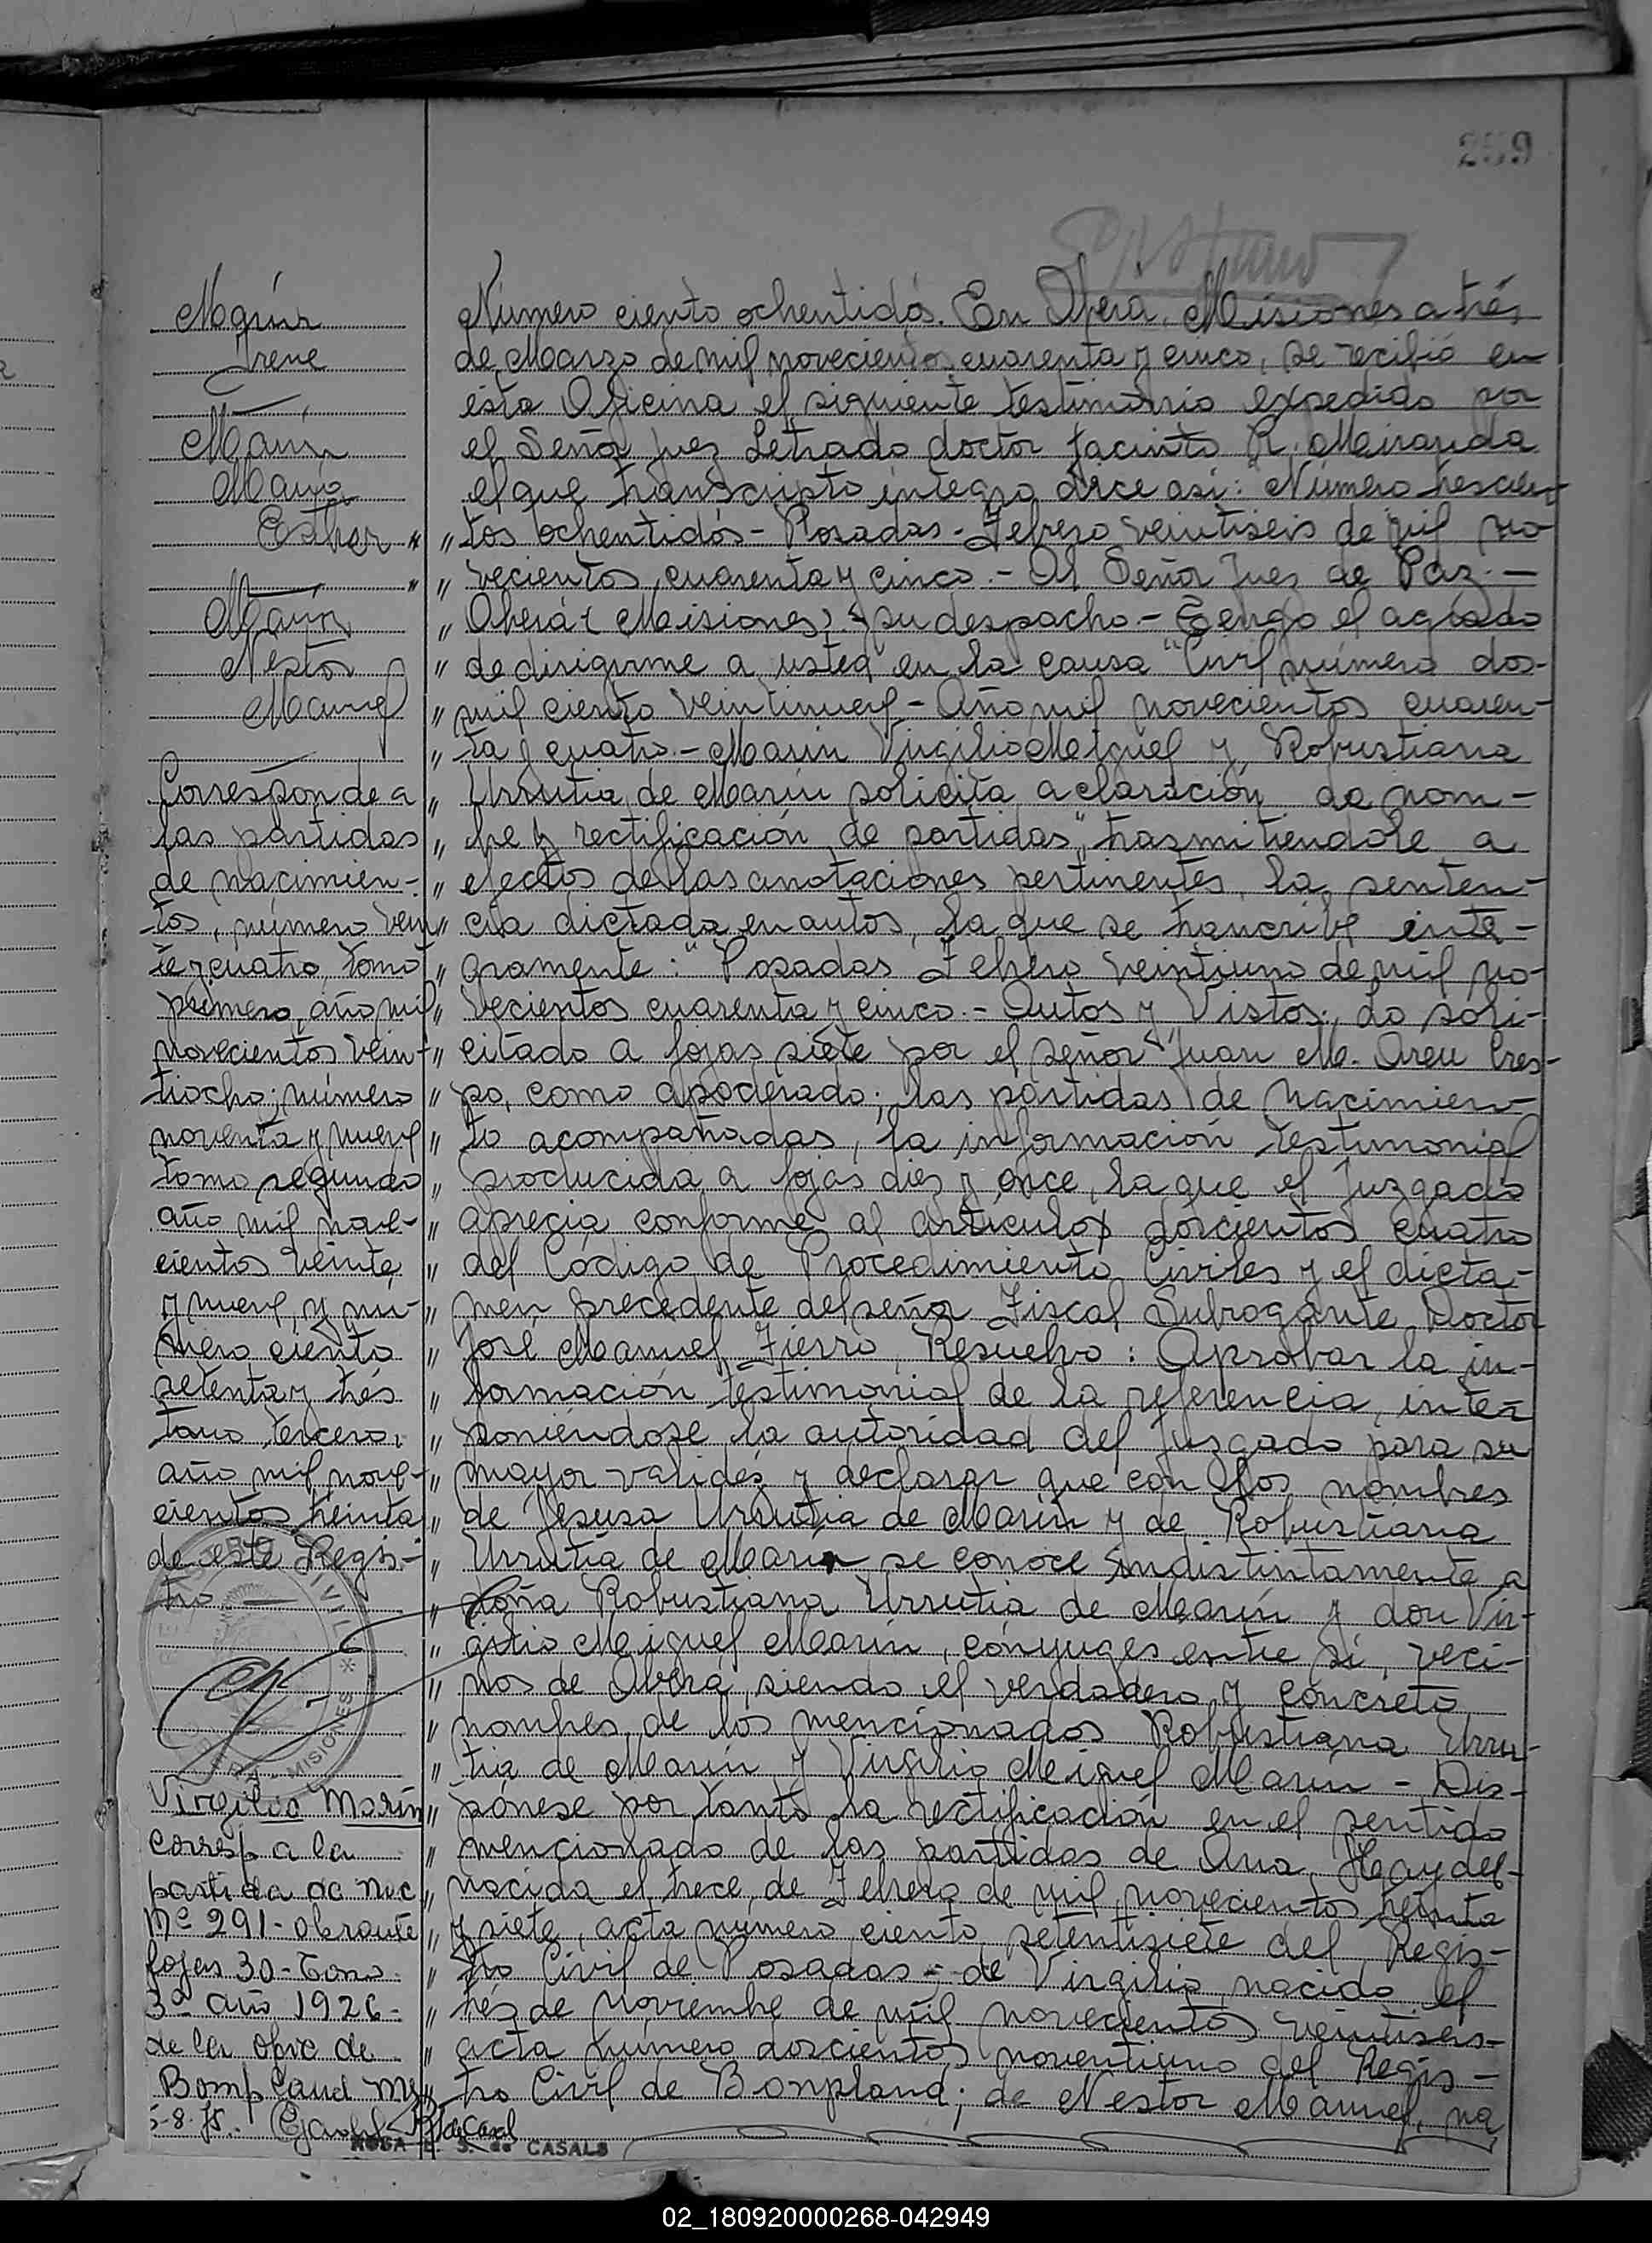 259
Número ciento ochentidós. En Oberá, Misiones a trés
de Marzo de mil novecientos cuarenta y cinco, se recibió en
esta Oficina el siguiente testimonio expedido por
el Señor Juez Letrado doctor Jacinto R. Miranda
el que transcripto íntegro dice así: Número trescien-
" tos ochentidós - Posadas - Febrero veintiseis de mil no
" vecientos cuarenta y cinco. - Al Señor Juez de Paz. -
" Oberá (Misiones). Su despacho - Tengo el agrado
" de dirigirme a usted en la causa "Civil número dos-
" mil ciento veintinueve - Año mil novecientos cuaren-
" ta y cuatro. - Marin Virgilio Meiguel y Robustiana
" Urrutia de Marin solicita aclaración de nom-
" bre y rectificación de partidas", trasmitiendole a
" efectos de las anotaciones pertinentes, la senten-
" cia dictada en autos, la que se trancribe inte-
" gramente: "Posadas Febrero veintiuno de mil no-
" vecientos cuarenta y cinco. - Autos y Vistos; Lo soli-
" citado a fojas siete por el señor Juan M. Areu Cres-
" po, como apoderado; las partidas de nacimien-
" to acompañadas, la información testimonial
" producida a fojas diez y once, la que el Juzgado
" aprecia conforme al artículo doscientos cuatro
" del Código de Procedimiento Civiles y el dicta-
" men precedente del señor Fiscal Subrogante Doctor
" José Manuel Fierro, Resuelvo: Aprobar la in-
" formación testimonial de la referencia, inter
" poniéndose la autoridad del Juzgado para su
" mayor validés y declarar que con los nombres
" de Jesusa Urrutia de Marin y de Robustiana
" Urrutia de Marin se conoce indistintamente a
" doña Robustiana Urrutia de Marín y don Vir-
" gilio Meiguel Marin, cónyuges entre sí, veci-
" nos de Oberá, siendo el verdadero y concreto
" nombres de los mencionados Robustiana Urru-
" tia de Marin y Virgilio Meiguel Marin - Dis-
" pónese por tanto la rectificación en el sentido
" mencionado de las partidas de Ana Haydeé-
" nacida el trece de Febrero de mil novecientos treinta
" y siete, acta número ciento setentisiete del Regis-
" tro Civil de Posadas - de Virgilio, nacido el
" trés de noviembre de mil novecientos veintiseis-
" acta número doscientos noventiuno del Regis-
" tro Civil de Bonpland; de Nestor Manuel, na
Irene
Marín
María
Esther
Marín
Nestor
Manuel
Corresponde a
las partidas
de nacimien-
tos, número vein
te y cuatro, tomo
primero, año mil
novecientos vein-
tiocho; número
noventa y nueve
tomo segundo
año mil nove-
cientos veinte
y nueve, y nú-
mero ciento
setenta y trés
tomo tercero,
año mil nove-
cientos treinta
de este Regis-
tro
MISIONES
Virgilio Marin
corresp a la
partida de nac
Nº 291 - obrante
fojas 30 - Tomo
3º año 1926 -
de la ofic de
Bompland Ms
5-8-75.
ROSA E. S. de CASALS
02_180920000268-042949